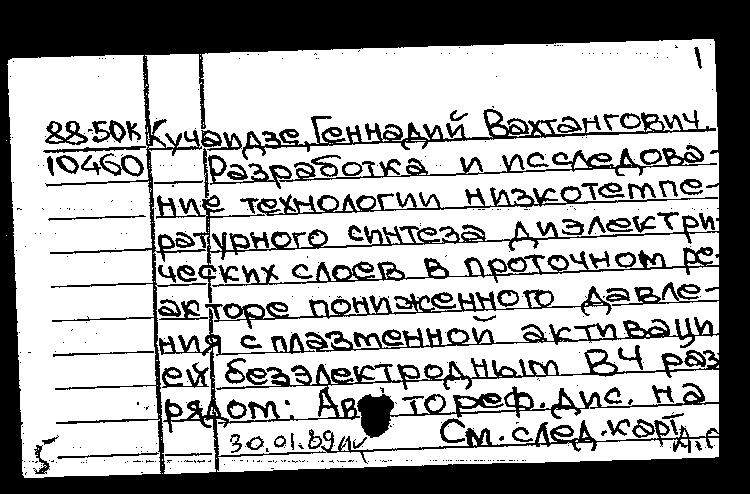 1
88-50К Кучаидзе, Геннадий Вахтангович.
10460 Разработка и исследова-
ние технологии низкотемпе-
ратурного синтеза диэлектри-
ческих слоев в проточном ре-
акторе пониженного давле-
ния с плазменной активаци
ей безэлектродным ВЧ раз
рядом: Автореф. дис. на
См. след. карт
30.01.89
5